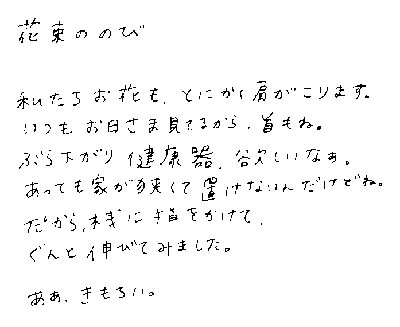 花束ののび
私たちお花も、とにかく肩がこります。
いつもお日さま見てるから、首もね。
ぶら下がり健康器、欲しいなぁ。
あっても家が狭くて置けないんだけどね。
だから、枝に指をかけて、
ぐんと伸びてみました。
ああ、きもちい。